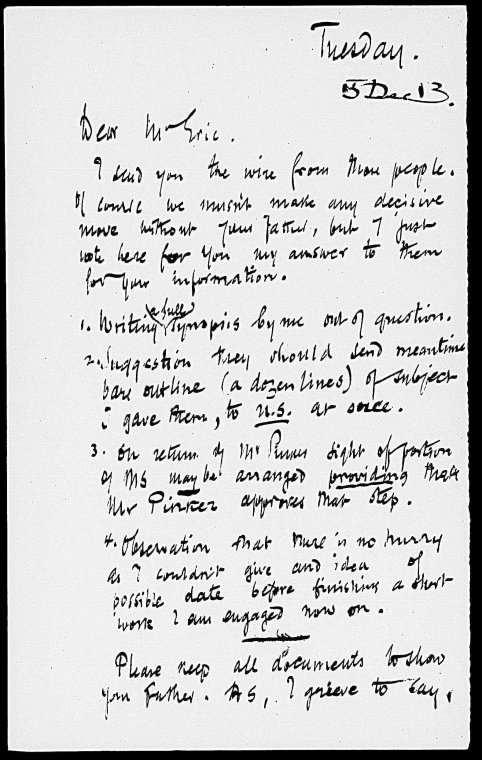 Tuesday.
5 Dec 13.
Dear Mr Eric.
I send you the wire from those people.
Of course we mustn't make any decisive
move without your father, but I just
note here for you my answer to them
for your information.
1. Writing (a full) synopsis by me out of question.
2. Suggestion they should send meantime
bare outline (a dozen lines) of subject
I gave them, to U.S. at once.
3. On return of Mr Pinker sight of portion
of MS may be arranged providing that
Mr Pinker approves that step.
4. Observation that there is no hurry
as I couldn't give and idea of
possible date before finishing a short
work I am engaged now on.
Please keep all documents to show
your father. As, I grieve to say,